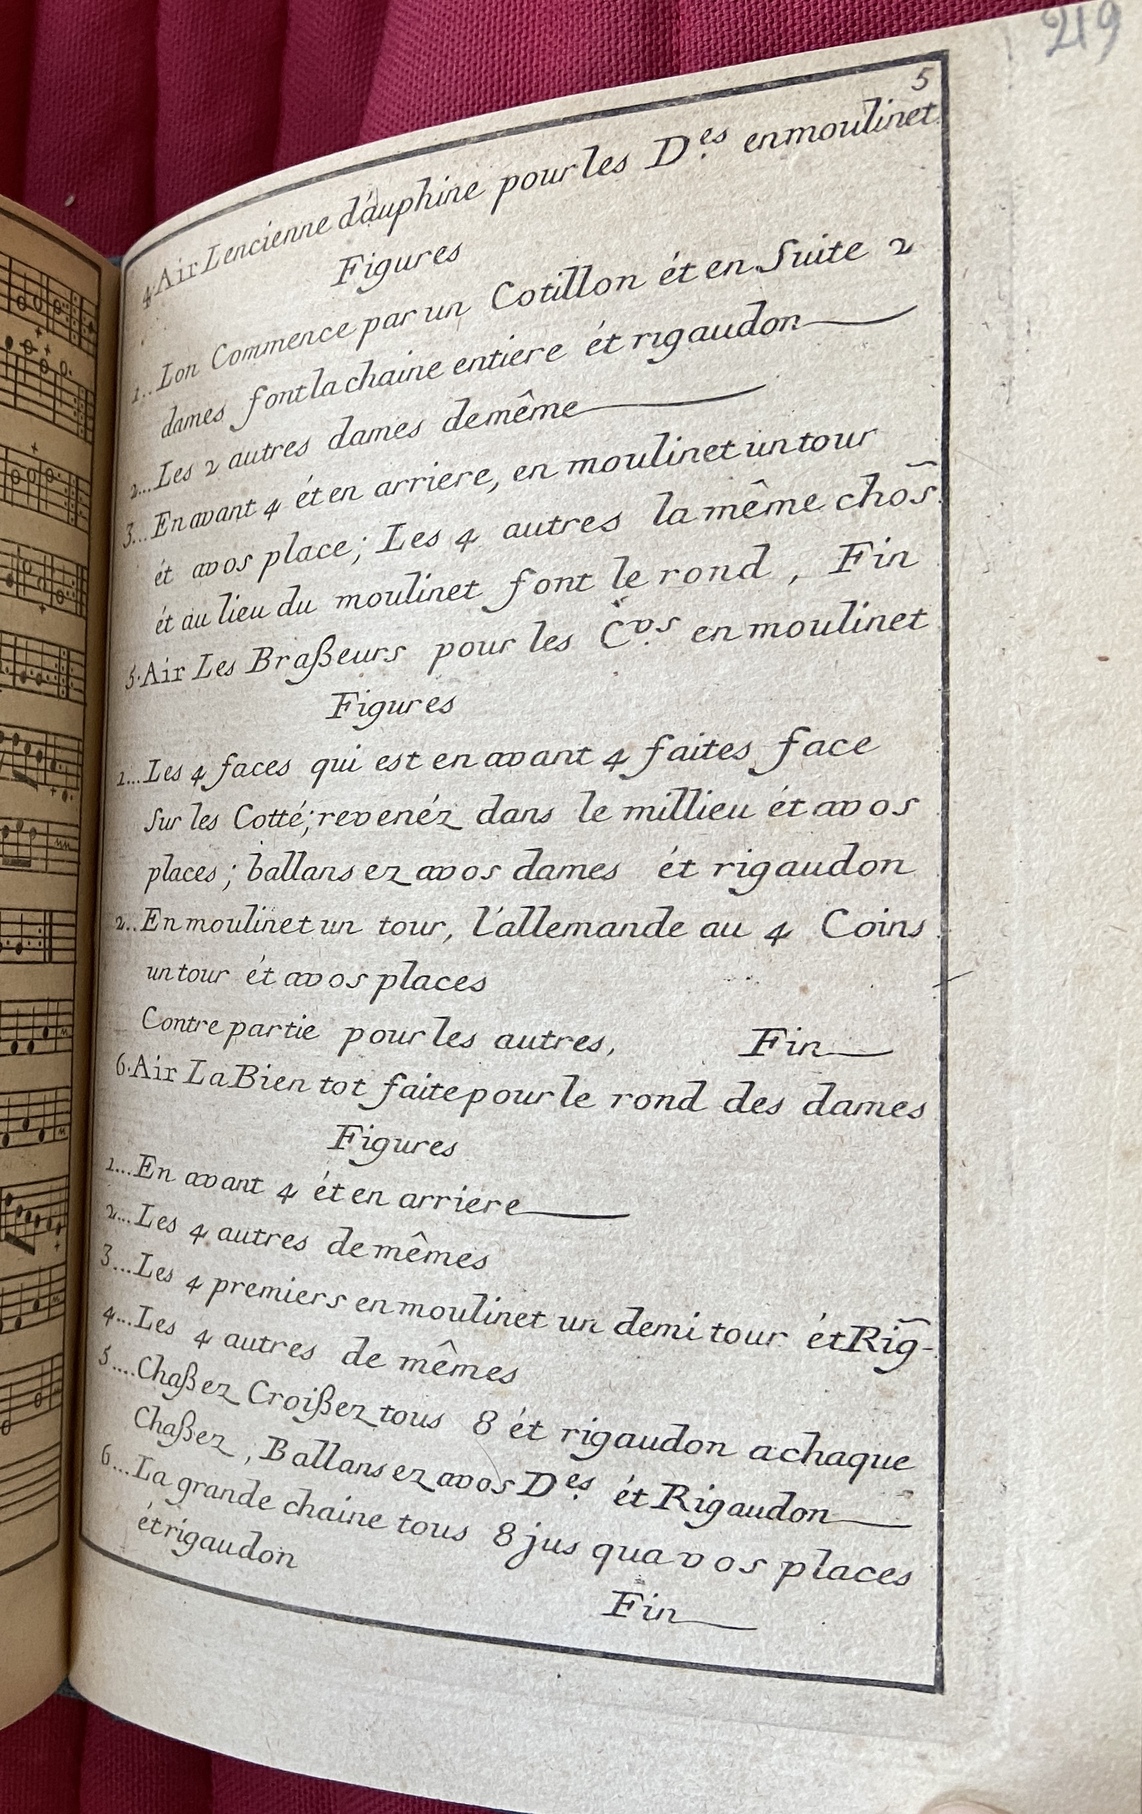 219
5
4 Air Lencienne d'auphine pour les D.es en moulinet
Figures
1.. Lon Commence par un Cotillon ét en Suite 2
dames font la chaine entiere ét rigaudon
2... Les 2 autres dames de même
3... En avant 4 ét en arriere, en moulinet un tour
ét a vos place; Les 4 autres la même chos̃
ét au lieu du moulinet font le rond, Fin
5. Air Les Braßeurs pour les C.vs en moulinet
Figures
1... Les 4 faces qui est en avant 4 faites face
Sur les Cotté; revenéz dans le millieu ét a vos
places; ballansez a vos dames ét rigaudon
2.. En moulinet un tour, l'allemande au 4 Coins
un tour ét a vos places
Contre partie pour les autres, Fin
6. Air La Bien tot faite pour le rond des dames
Figures
1... En avant 4 ét en arriere
2... Les 4 autres de mêmes
3... Les 4 premiers en moulinet un demi tour ét Rig̃-
4... Les 4 autres de mêmes
5.... Chaßez Croißez tous 8 ét rigaudon a chaque
Chaßez, Ballansez a vos D.es ét Rigaudon
6... La grande chaine tous 8 jus qu a vos places
ét rigaudon
Fin